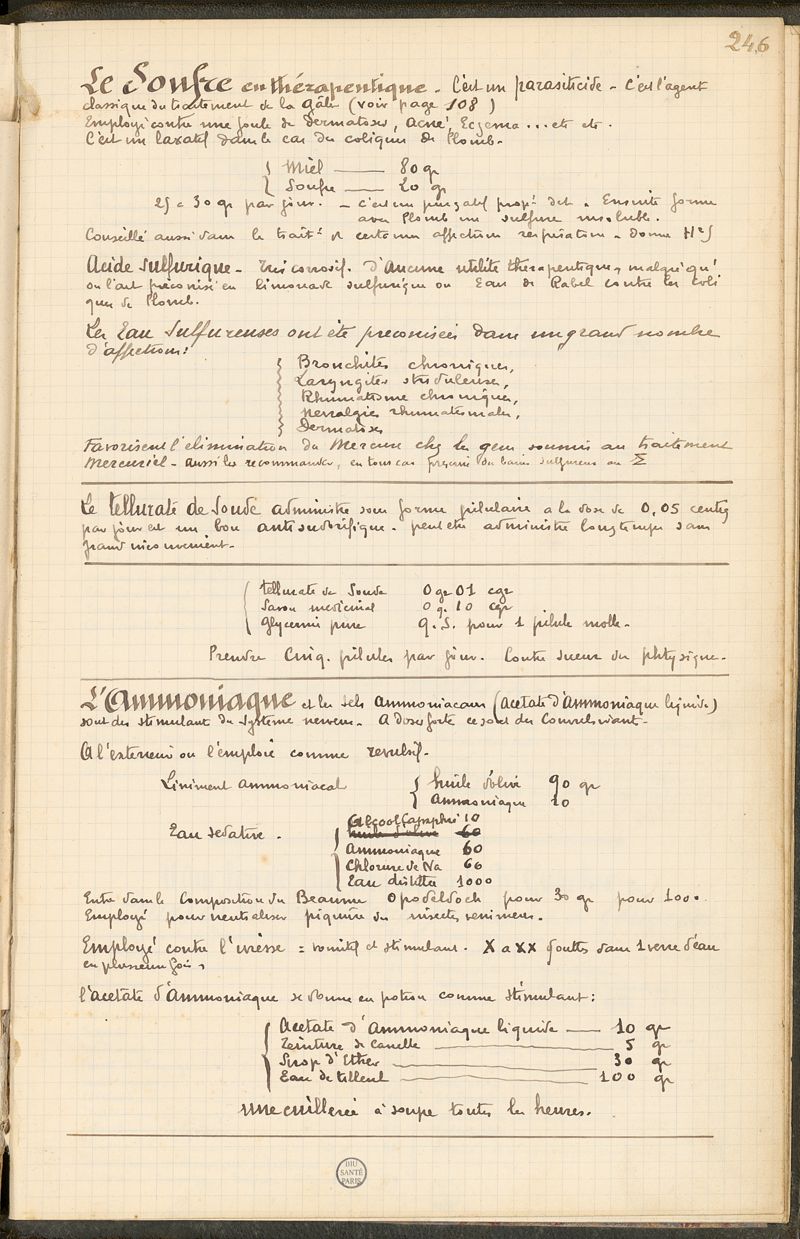 246
Le Soufre en thérapeutique - C'est un parasiticide - C'est l'agent
classique du traitement de la gâle (voir page 108)
Employé contre une foule de Dermatoses, Acné, Eczema... etc etc.
C'est un laxatif dans le cas des coliques de Plomb.
Miel — 80 gr
Soufre — 20 gr
25 à 30 gr par jour. - C'est un purgatif propt dit. Ensuite forme
avec Plomb un sulfure insoluble.
Conseillé aussi dans le trait.t de certaines affections respiratoires - donne H²S
Acide Sulfurique - Très corrosif. D'aucune utilité thérapeutique, malgré qu'
on l'ait préconisé en limonade sulfurique ou Eau de Rabel contre les coli
ques de Plomb.
Les Eau Sulfureuses ont été préconisées dans un grand nombre
d'affections:
Bronchites chroniques,
Laryngites striduleuse,
Rhumatisme chroniques,
nevralgies rhumatismales,
Dermatoses
Favorisent l'elimination du Mercure chez les gens soumis au traitement
Mercuriel - aussi les recommander, en tous cas prescrire des bains sulfureux au Σ
Le tellurate de Soude administré sous forme pilulaire a la dose de 0,05 centig
par jour est un bon antisudorifique. peut être administré longtemps sans
grand inconvenient.
tellurate de Soude 0 gr 01 cgr
Savon medicinal 0 g. 10 cgr
Glycerine pure q.S. pour 1 pilule molle.
Prendre Cinq. pilules par jour. Contre sueur du phtysique.
L'Ammoniaque et les sels Ammoniacaux (Acétate d'Ammoniaque liquide)
sont des stimulant du systeme nerveux. A dose forte ce sont des Convulsivant.
A l'exterieur on l'emploie comme revulsif.
Liniment ammoniacal huile d'olive 90 gr
Ammoniaque 10
Alcool Camphré 10
Eau sedative. huile d'olive 60
Ammoniaque 60
Chlorure de Na 60
Eau distillée 1000
Entre dans le Composition du Beaume Opodeldoch pour 30 gr pour 1000.
Employé pour neutraliser piqures des insectes venimeux.
Employé contre l'ivresse = vomitif et stimulant. X a XX Gouttes dans 1 verre d'eau
en plusieurs fois,
l'acetate d'Ammoniaque se donne en potion comme stimulant:
Acetate d'Ammoniaque liquide — 10 gr
Teinture de Canelle — 5 gr
Sirop d'Ether — 30 gr
Eau de tilleul — 100 gr
une cuillerée à soupe toutes les heures.
DIU
SANTÉ
PARIS